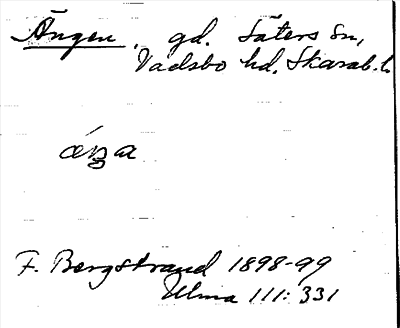 Ängen, gd. Säters sn,
Vadsbo hd. Skarab. l.
äŋa
F. Bergstrand 1898-99
Ulma 111: 331